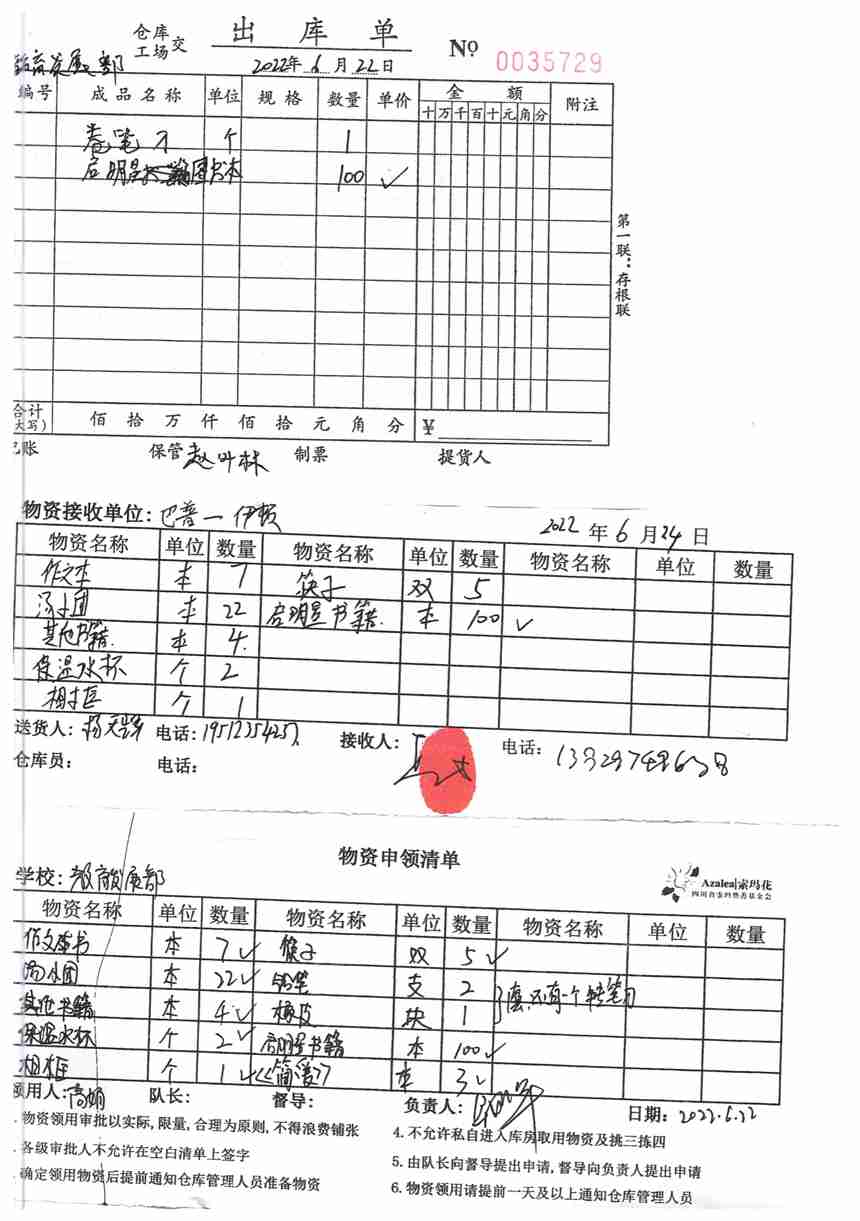 仓库
工场 交 出 库 单
教育发展部 2022年 6 月 22 日 № 0035729
编号 成品名称 单位 规格 数量 单价 金额 附注
十万千百十元角分
卷笔刀 个 1
启明星 图书 本 100 ✓
第一联:存根联
合计
(大写) 佰 拾 万 仟 佰 拾 元 角 分 ¥
记账 保管 赵叶林 制票 提货人
物资接收单位:巴普一伊顿 2022 年 6 月 24 日
物资名称 单位 数量 物资名称 单位 数量 物资名称 单位 数量
作文本 本 7 筷子 双 5
汤小团 本 22 启明星书籍 本 100 ✓
其他书籍. 本 4.
保温水杯 个 2
相框 个 1
送货人: 电话:19512254257 接收人: 电话:
仓库员: 电话:
物资申领清单
学校:教育发展部 Azalea|索玛花
四川省索玛慈善基金会
物资名称 单位 数量 物资名称 单位 数量 物资名称 单位 数量
作文本书 本 7 ✓ 筷子 双 5 ✓
汤小团 本 22 ✓ 铅笔 支 2
其他书籍 本 4 ✓ 橡皮 块 1 还有一个转笔刀
保温水杯 个 2 ✓ 启明星书籍 本 100 ✓
相框 个 1 ✓ 《简爱》 本 3 ✓
领用人:高娟 队长: 督导: 负责人: 日期:2022.6.22
.物资领用审批以实际,限量,合理为原则,不得浪费铺张
.各级审批人不允许在空白清单上签字
.确定领用物资后提前通知仓库管理人员准备物资
4.不允许私自进入库房取用物资及挑三拣四
5.由队长向督导提出申请,督导向负责人提出申请
6.物资领用请提前一天及以上通知仓库管理人员